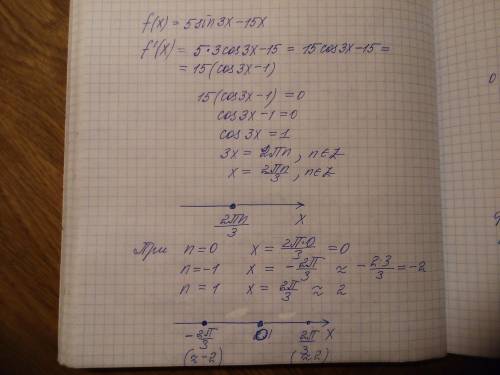 f(x) = 5sin3x-15x
f'(x) = 5·3cos3x-15 = 15cos3x-15=
= 15(cos3x-1)
15(cos3x-1) = 0
cos3x-1=0
cos3x = 1
3x = 2πn, n∈Z
x = 2πn/3, n∈Z
2πn/3 x
При n=0 x = 2π·0/3 = 0
n=-1 x = -2π/3 ≈ -2·3/3 = -2
n = 1 x = 2π/3 ≈ 2
-2π/3 0 2π/3 x
(≈-2) (≈2)